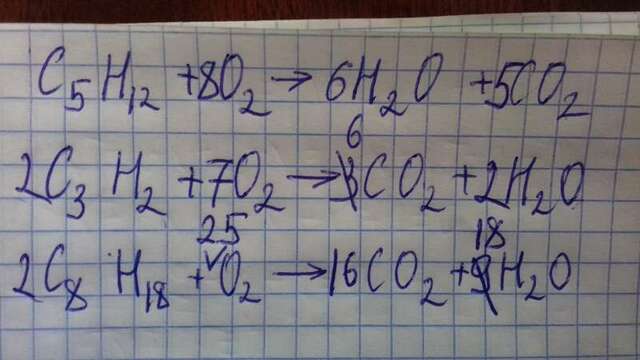 C₅H₁₂ + 8O₂ → 6H₂O + 5CO₂
2C₃H₂ + 7O₂ → 6CO₂ + 2H₂O
2C₈H₁₈ + 25O₂ → 16CO₂ + 18H₂O